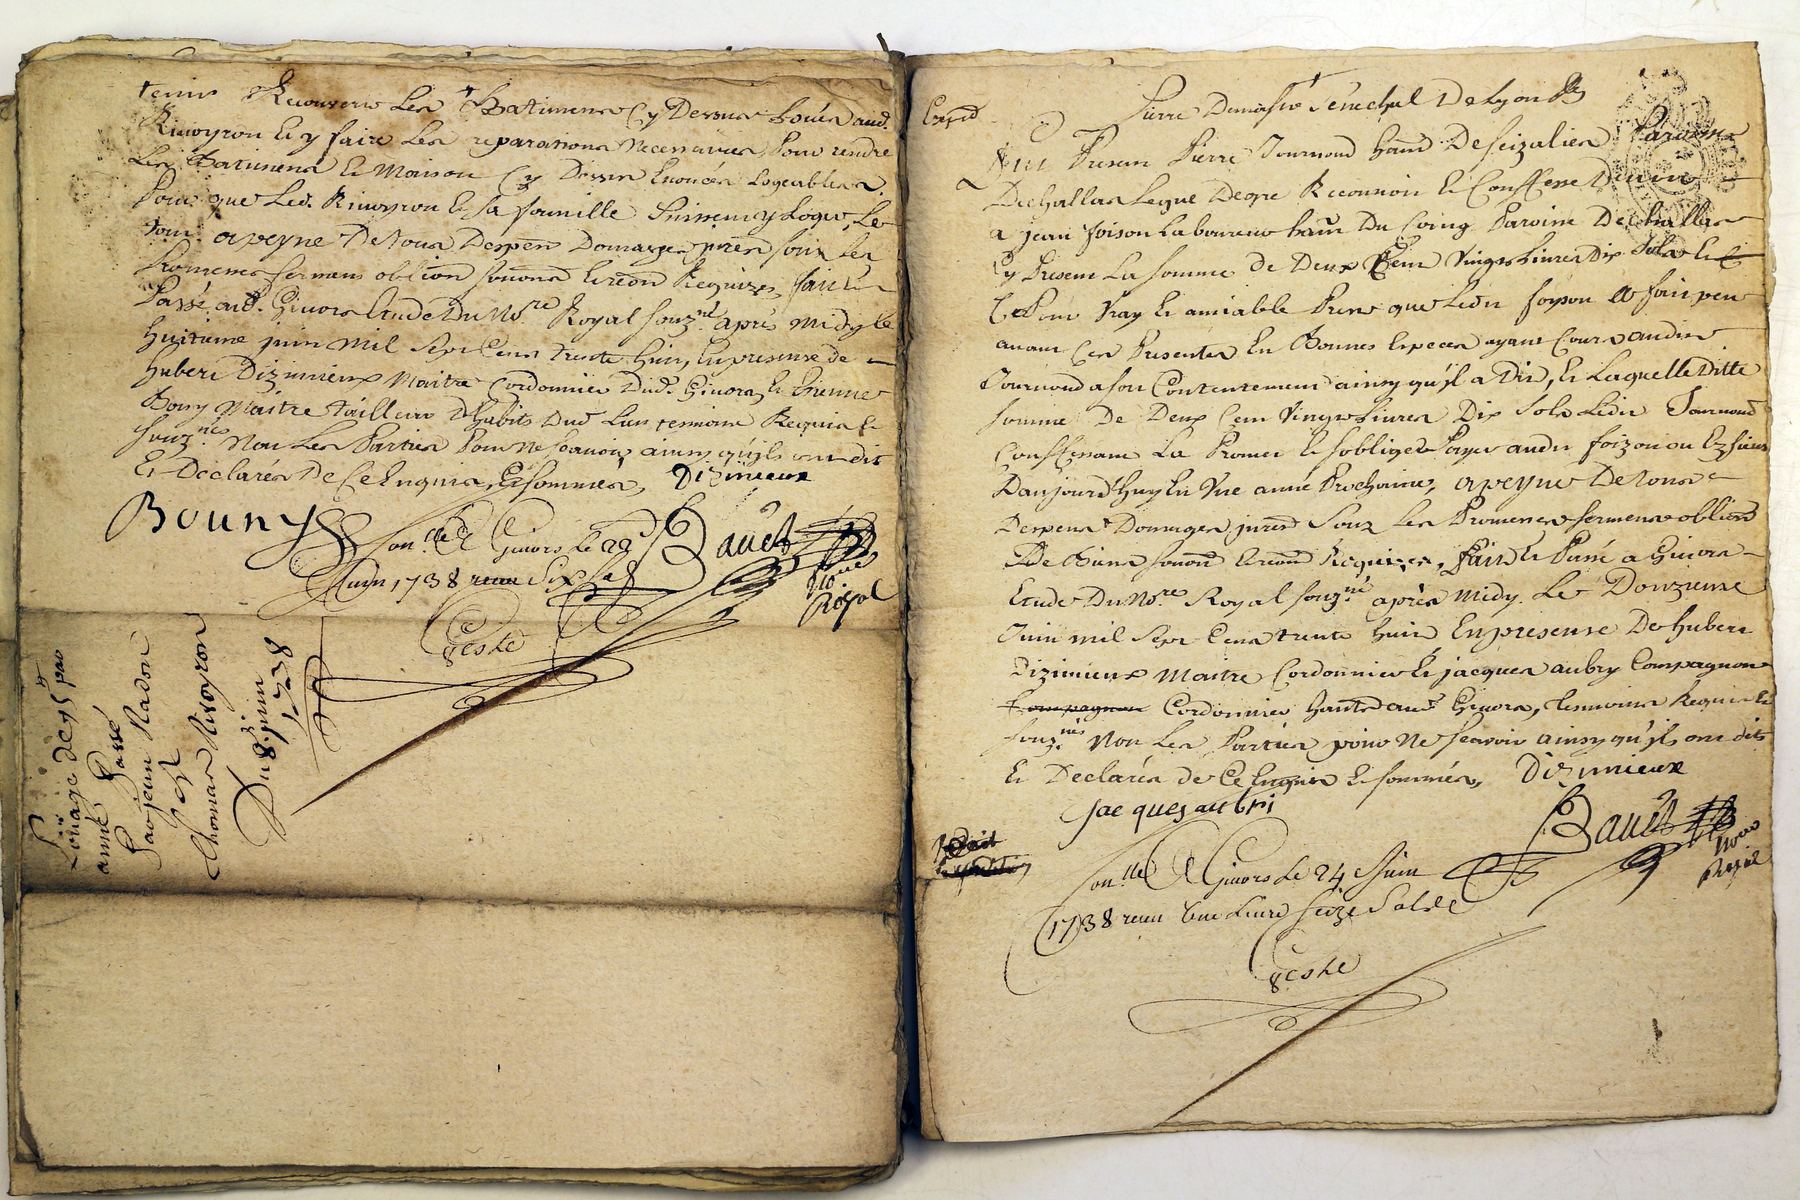 tenir Recouvrir Les Batimens Cy Dessus Loués aud.
Rivoyron Et y faire Les reparations Necessaires Pour rendre
Les Batimens Et Maison Cy Dessus Enoncés Logeables
Pour que Led. Rivoyron Et Sa famille Puissent y Loger, Le
tout apeyne De tous Despens Domages Souz Les
Promesses sermens Requizes, fait &
Passé aud. Givors Etude Du No.re Royal souz.né après midy le
huitieme juin mil Sept Cens trente huit, En presense de
hubert Dizimieux Maitre Cordonnier Dud. Givors, Et Etienne
Bony Maitre tailleur D'habits Dud. Lieu temoins Requis Et
souz.nés Non Les Parties Pour Ne Scavoir ainsy qu'ils ont dit
Et Declarés De Ce Enquis, Et Sommés, Dizimieux
Bouny
Con.llé A Givors Le 22
Juin 1738 receu Six sols
Bauet
No.re
Royal
Geste
Loüage de
année Passé
Par jean Nadon
à
Thomas Rivoyron
Du 8 juin
1738
Pierre Demasso Senechal De Lyon
Fut Present Pierre Tournoud hant De seizalier Paroisse
De challas Lequel De gré Reconnoit Et Conffesse Devoir
a jean foison Laboureur hant Du Coing Paroisse De challas
Cy Present La somme de Deux Cent Vingt Livres Dix Sols Et Ce
Pour Vray Et amiable Prest que Ledit foyson a fait peu
avant Ces Presentes En Bonnes Especes ayant Cours audit
Tournoud a son Contentement ainsy qu'il a Dit, Et Laquelle Ditte
somme De Deux Cent Vingt Livres Dix Sols Ledit Tournoud
Conffessant La Promet Et s'oblige Payer audit foizon ou Es siens
D'aujourd'huy En Vne année Prochaine, apeyne De tous
Despens Domages Souz Les Promesses sermens
De Biens Requizes, fait Et Passé a Givors
Etude Du No.re Royal souz.né après midy Le Douzieme
Juin mil Sept Cens trente huit En presense De hubert
Dizimieux Maitre Cordonnier Et jacques aubry Compagnon
Compagnon Cordonnier hants aud. Givors, temoins Requis Et
souz.nés Non Les Parties pour Ne scavoir ainsy qu'ils ont dits
Et Declarés de Ce Enquis Et sommés, Dizimieux
jacques aubri
Bauet
No.re
Royal
Con.llé A Givors Le 24 Juin
1738 receu Une Livre Seize Sols
Geste